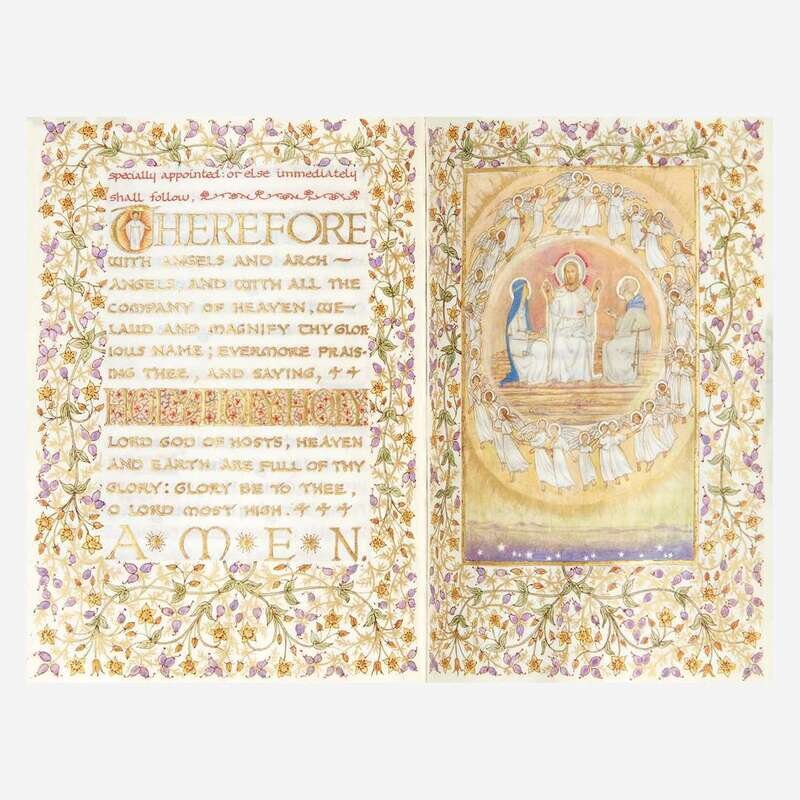 specially appointed: or else immediately
shall follow,
THEREFORE
WITH ANGELS AND ARCH~
ANGELS, AND WITH ALL THE
COMPANY OF HEAVEN, WE~
LAUD AND MAGNIFY THY GLOR
IOUS NAME; EVERMORE PRAIS-
ING THEE, AND SAYING,
HOLY HOLY HOLY
LORD GOD OF HOSTS, HEAVEN
AND EARTH ARE FULL OF THY
GLORY: GLORY BE TO THEE,
O LORD MOST HIGH.
A M E N.